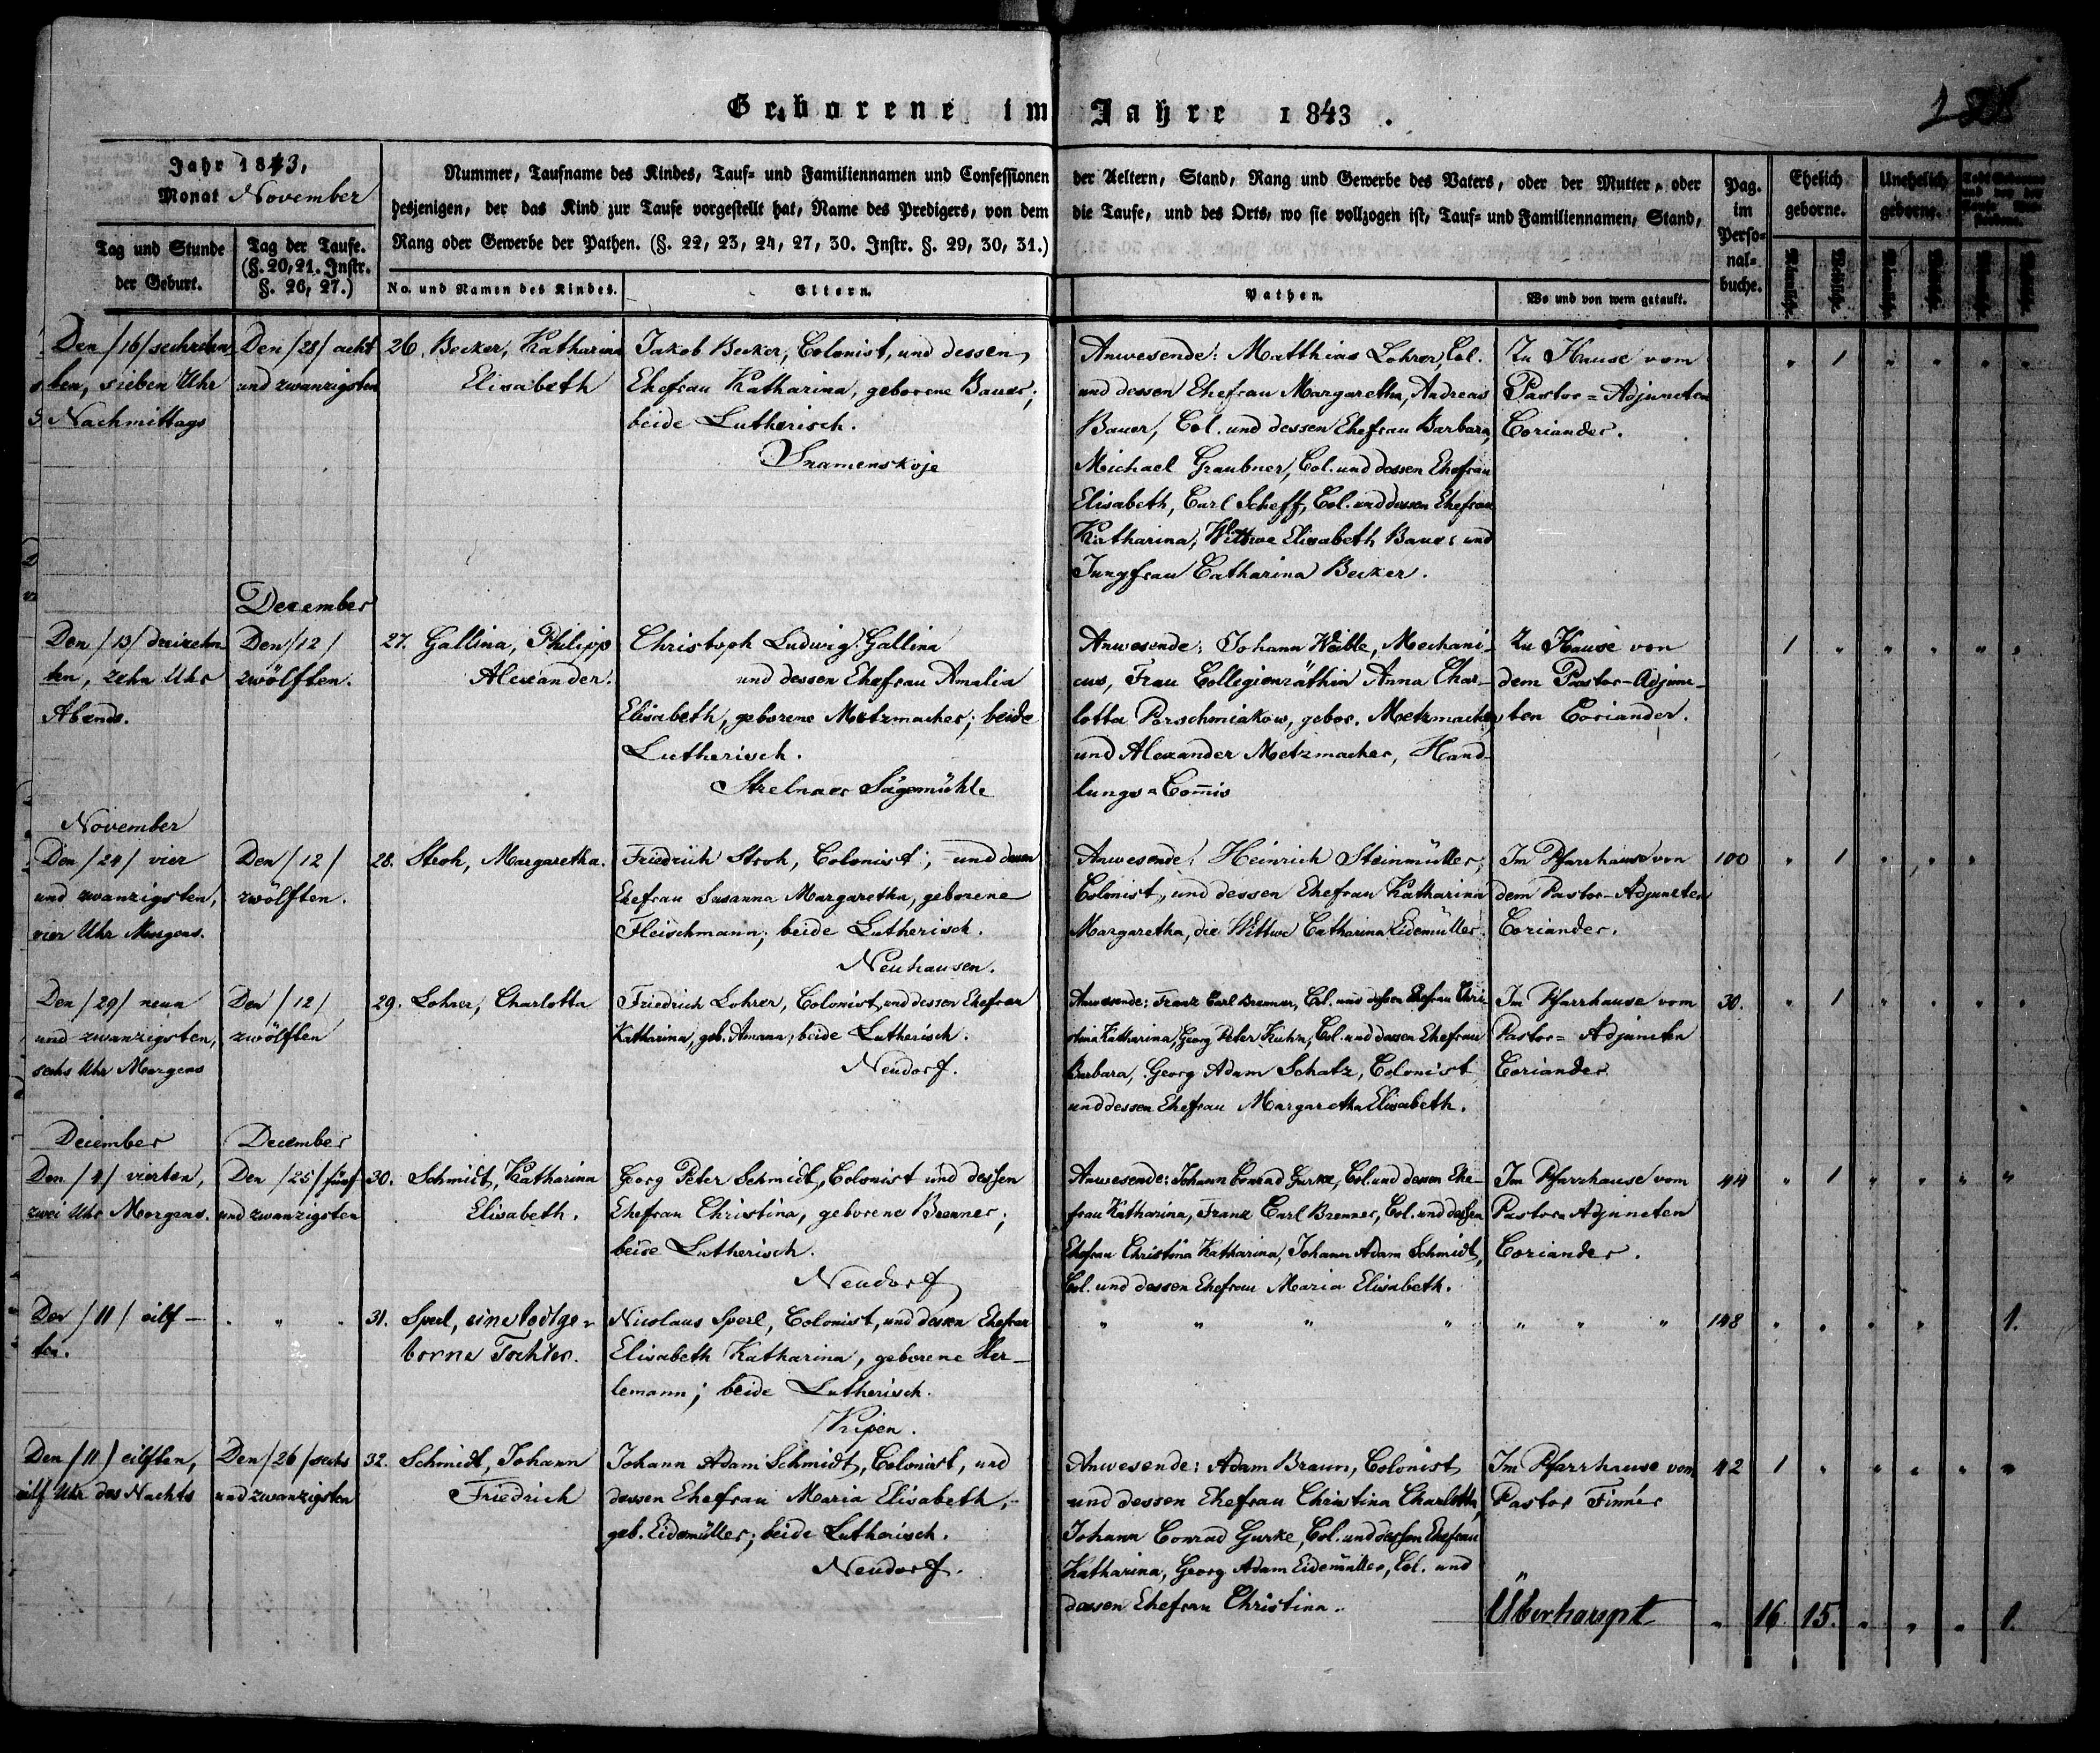 Geborene im Jahre 1843.
Jahr 1843,
Monat November
Tag und Stunde
der Geburt.
Tag der Taufe.
(§. 20, 21. Instr.
§. 26, 27.)
Nummer, Taufname des Kindes, Tauf- und Familiennamen und Confessionen der Aeltern, Stand, Rang und Gewerbe des Vaters, oder der Mutter, oder
desjenigen, der das Kind zur Taufe vorgestellt hat, Name des Predigers, von dem die Taufe, und des Orts, wo sie vollzogen ist, Tauf- und Familiennamen, Stand,
Rang oder Gewerbe der Pathen. (§. 22, 23, 24, 27, 30. Instr. §. 29, 30, 31.)
No. und Namen des Kindes.
Eltern.
Pathen.
Wo und von wem getauft.
Pag.
im
Perso-
nal-
buche.
Ehelich
geborne.
Unehelich
geborne.
Männliche.
Weibliche.
Männliche.
Weibliche.
Den /16/ sechzehn
ten, sieben Uhr
Nachmittags
Den /28/ acht
und zwanzigsten
26. Becker, Katharina
Elisabeth
Jakob Becker, Colonist, und dessen
Ehefrau Katharina, geborene Bauer;
beide Lutherisch.
Snamenskoje
Anwesende: Matthias Lohrer, Col.
und dessen Ehefrau Margaretha, Andreas
Bauer, Col. und dessen Ehefrau Barbara,
Michael Graubner, Col. und dessen Ehefrau
Elisabeth, Carl Scheff, Col. und dessen Ehefrau
Katharina, Wittwe Elisabeth Bauer und
Jungfrau Catharina Becker.
Zu Hause vom
Pastor-Adjuncten
Coriander.
" 1 " " " "
December
Den /13/ dreizehn
ten, zehn Uhr
Abends.
Den /12/
zwölften.
27. Gallina, Philipp
Alexander.
Christoph Ludwig Gallina
und dessen Ehefrau Amalia
Elisabeth, geborene Metzmacher; beide
Lutherisch.
Strelnaer Sägemühle
Anwesende: Johann Weible, Mechani-
cus, Frau Collegienräthin Anna Char-
lotta Porschniakow, gebor. Metzmacher,
und Alexander Metzmacher, Hand-
lungs-Com̄is
Zu Hause von
dem Pastor-Adjunc-
ten Coriander.
1 " " " " "
November
Den /24/ vier
und zwanzigsten,
vier Uhr Morgens.
Den /12/
zwölften.
28. Stroh, Margaretha.
Friedrich Stroh, Colonist, und dessen
Ehefrau Susanna Margaretha, geborene
Fleischmann; beide Lutherisch.
Neuhausen.
Anwesende: Heinrich Steinmüller,
Colonist, und dessen Ehefrau Katharina
Margaretha, die Wittwe Catharina Eidemüller.
Im Pfarrhause von
dem Pastor-Adjuncten
Coriander.
100 " 1 " " "
Den /29/ neun
und zwanzigsten,
sechs Uhr Morgens
Den /12/
zwölften
29. Lohrer, Charlotta
Friedrich Lohrer, Colonist, und dessen Ehefrau
Katharina, geb. Amann, beide Lutherisch.
Neudorf.
Anwesende: Franz Carl Brenner, Col. und dessen Ehefrau Chri-
stina Katharina, Georg Peter Kuhn, Col. und dessen Ehefrau
Barbara, Georg Adam Schatz, Colonist
und dessen Ehefrau Margaretha Elisabeth.
Im Pfarrhause vom
Pastor-Adjuncten
Coriander
30. " 1 " " " "
December
December
Den /4/ vierten,
zwei Uhr Morgens.
Den /25/ fünf
und zwanzigsten
30. Schmidt, Katharina
Elisabeth.
Georg Peter Schmidt, Colonist und dessen
Ehefrau Christina, geborene Brenner;
beide Lutherisch.
Neudorf
Anwesende: Johann Conrad Gurke, Col. und dessen Ehe-
frau Katharina, Franz Carl Brenner, Col. und dessen
Ehefrau Christina Katharina, Johann Adam Schmidt,
Col. und dessen Ehefrau Maria Elisabeth.
Im Pfarrhause vom
Pastor-Adjuncten
Coriander.
44 " 1 " " " "
Den /11/ eilf-
ten.
" " "
31. Sperl, eine todtge-
borne Tochter.
Nicolaus Sperl, Colonist, und dessen Ehefrau
Elisabeth Katharina, geborene Her-
lemann; beide Lutherisch.
Kipen.
" " " " " " "
148 " " " " 1.
Den /11/ eilften,
eilf Uhr des Nachts
Den /26/ sechs
und zwanzigsten
32. Schmidt, Johann
Friedrich
Johann Adam Schmidt, Colonist, und
dessen Ehefrau Maria Elisabeth,
geb. Eidemüller; beide Lutherisch.
Neudorf.
Anwesende: Adam Braun, Colonist
und dessen Ehefrau Christina Charlotta,
Johann Conrad Gurke, Col. und dessen Ehefrau
Katharina, Georg Adam Eidemüller, Col. und
dessen Ehefrau Christina.
Im Pfarrhause vom
Pastor Finnér
42 1 " " " " "
Überhaupt " 16 15. " " " 1.